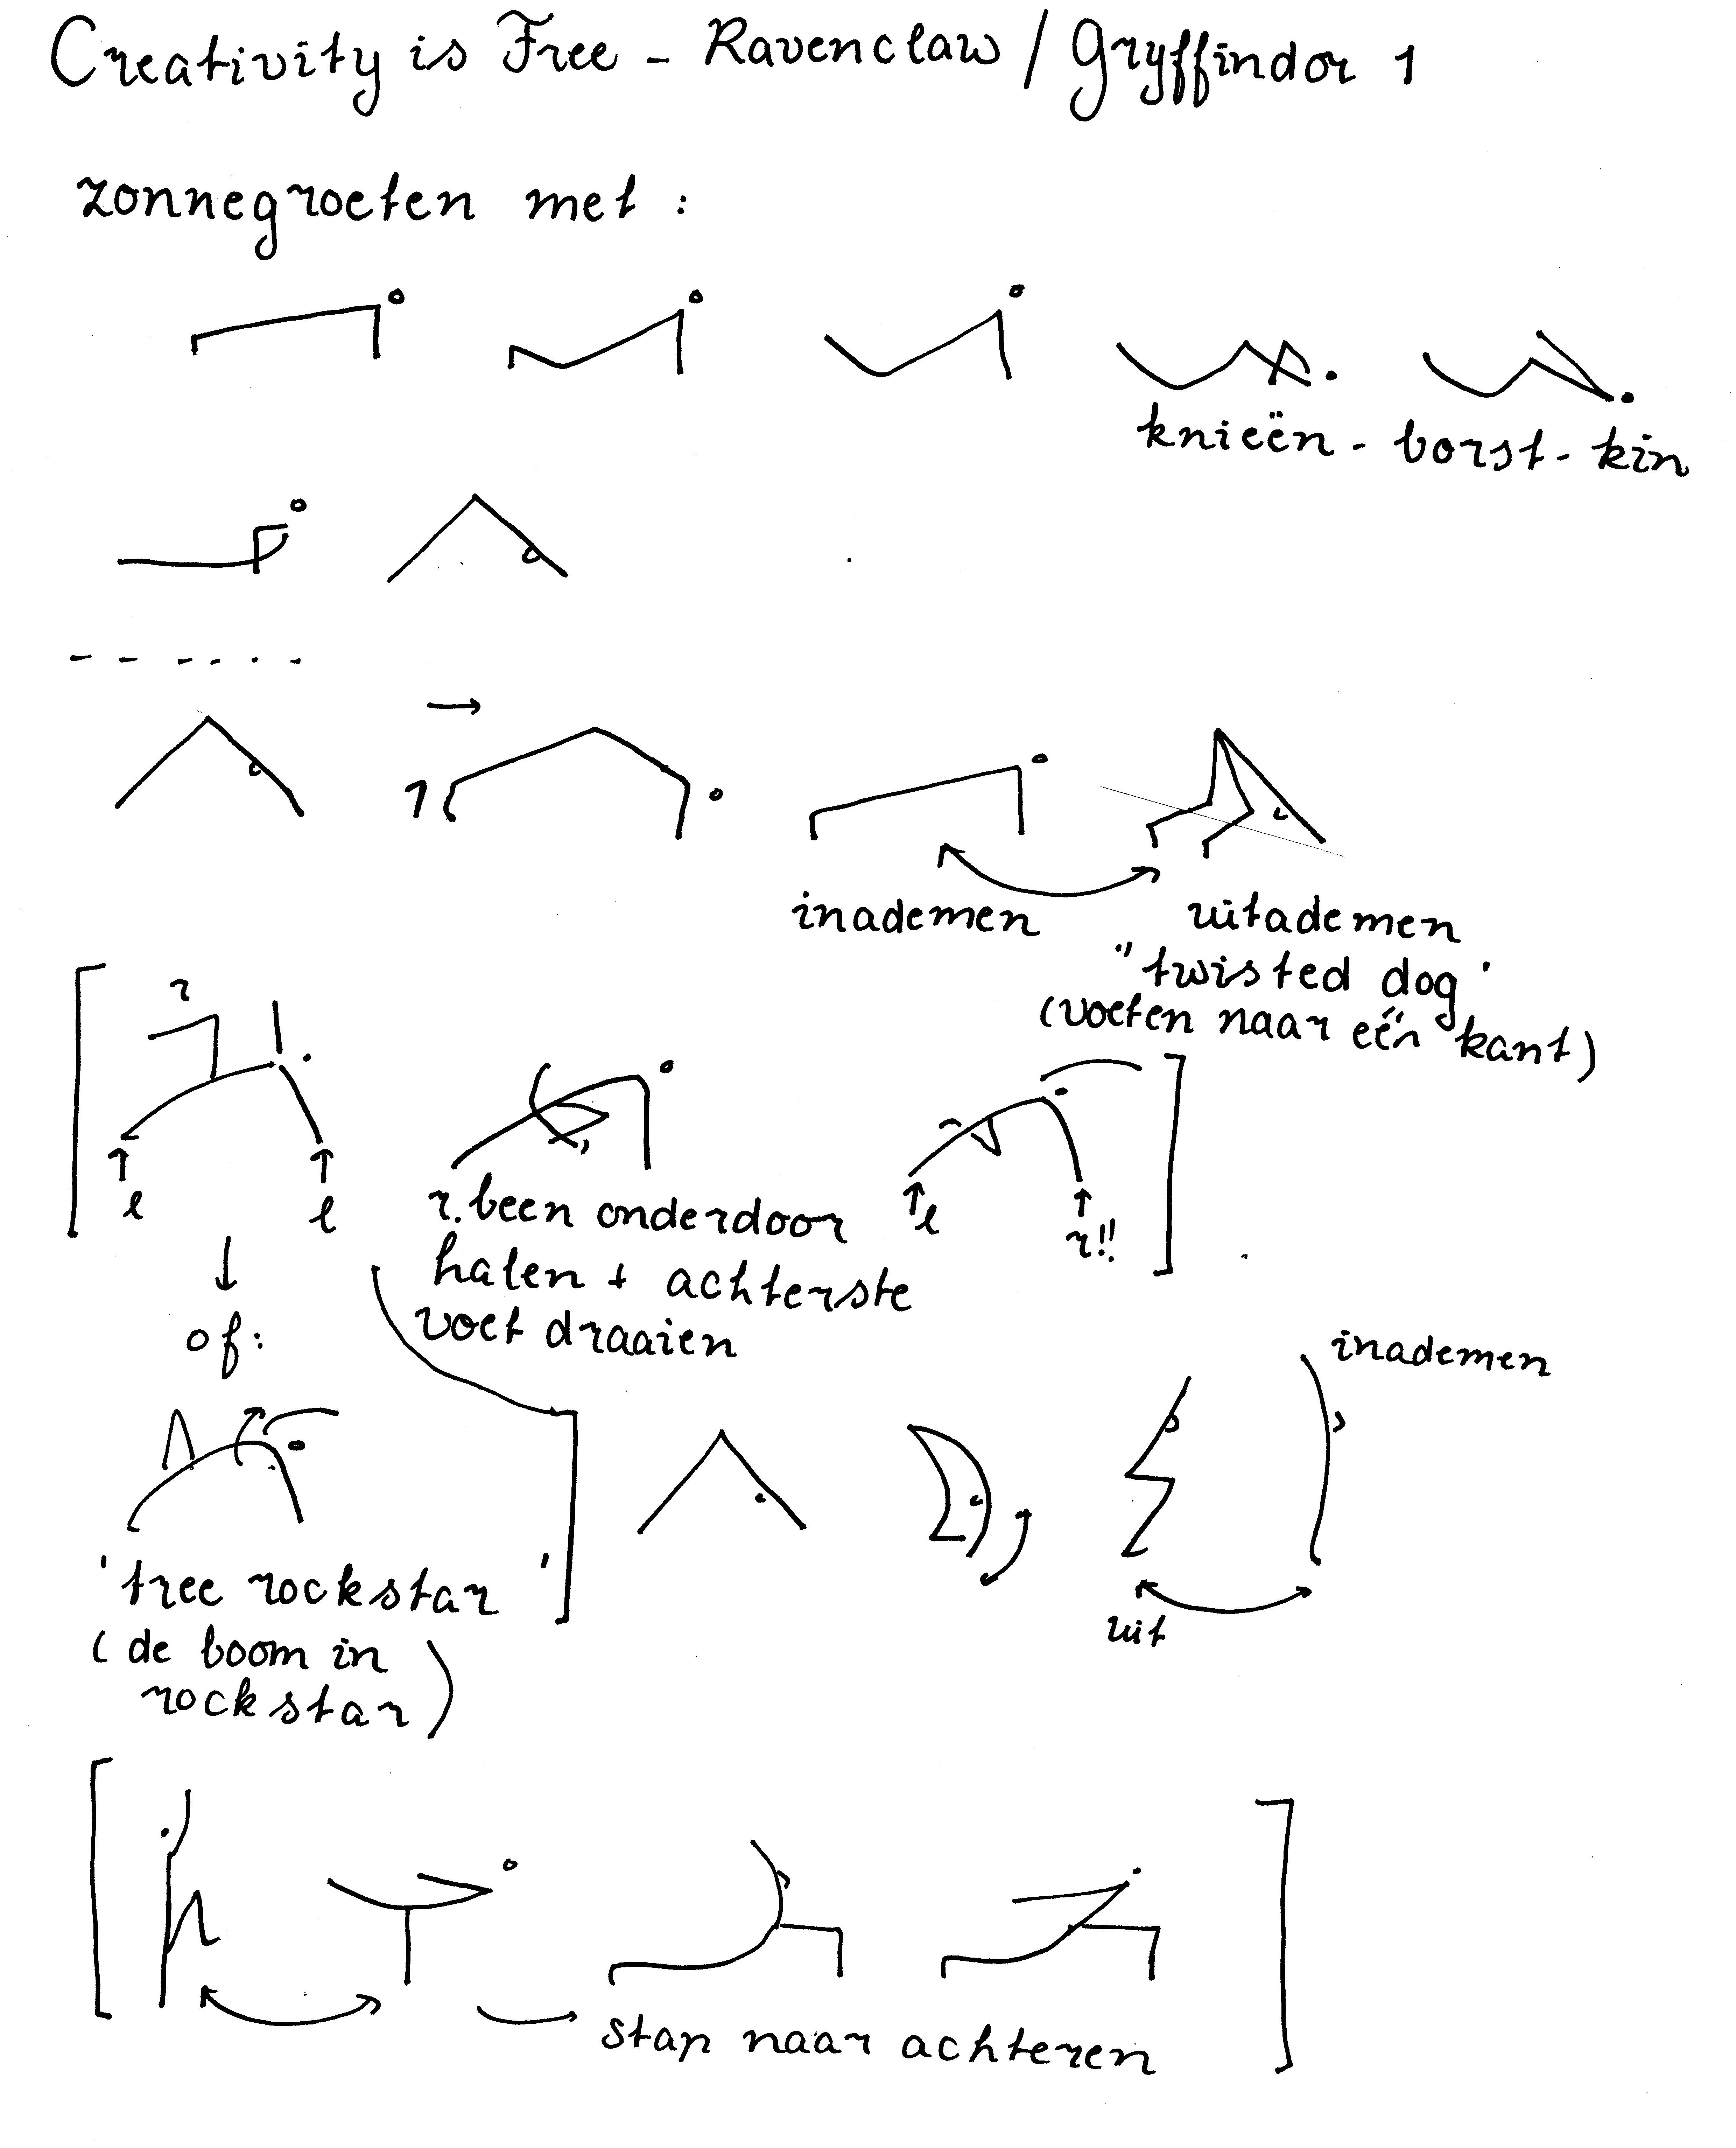 Creativity is Free - Ravenclaw / Gryffindor 1
zonnegroeten met :
knieën - borst - kin
1
inademen
uitademen
"twisted dog'
(voeten naar één kant)
r
l
l
r. been onderdoor
halen + achterste
voet draaien
l
r!!
of:
inademen
'tree rockstar'
(de boom in
rockstar)
uit
stap naar achteren